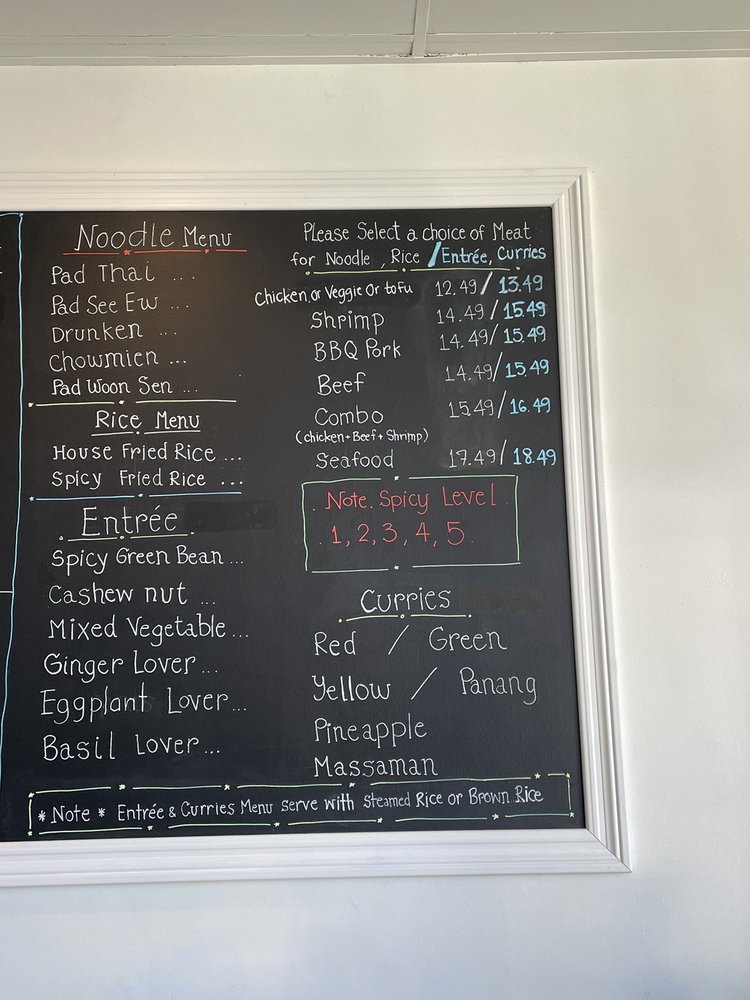 Noodle Menu
Pad Thai ...
Pad See Ew ...
Drunken ...
Chowmien ...
Pad Woon Sen ...
Rice Menu
House Fried Rice ...
Spicy Fried Rice ...
Entrée
Spicy Green Bean ...
Cashew nut ...
Mixed Vegetable ...
Ginger Lover ...
Eggplant Lover ...
Basil Lover ...
Please Select a choice of Meat
for Noodle, Rice / Entrée, Curries
Chicken or Veggie Or tofu 12.49 / 13.49
Shrimp 14.49 / 15.49
BBQ Pork 14.49 / 15.49
Beef 14.49 / 15.49
Combo 15.49 / 16.49
(chicken + Beef + Shrimp)
Seafood 17.49 / 18.49
Note. Spicy Level
1, 2, 3, 4, 5
Curries
Red / Green
Yellow / Panang
Pineapple
Massaman
* Note * Entrée & Curries Menu serve with Steamed Rice or Brown Rice